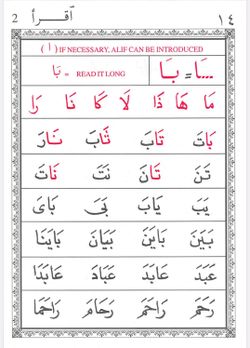 2 اقرأ ١٤
( ا ) IF NECESSARY, ALIF CAN BE INTRODUCED
بَا = READ IT LONG ...َا = بَا
مَا هَا ذَا لَا كَا نَا رَا
بَاتَ تَابَ ثَابَ نَارَ
تَنَ تَانَ نَتَ نَاتَ
يَبَ يَابَ بَىَ بَاىَ
بَيَنَ بَايَنَ بَيَانَ بَايَنَا
عَبَدَ عَابَدَ عَبَادَ عَابَدَا
رَحَمَ رَاحَمَ رَحَامَ رَاحَمَا